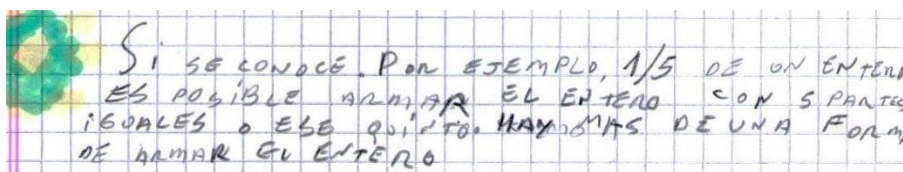 Si SE CONOCE. POR EJEMPLO, 1/5 DE UN ENTERO
ES POSiBLE ARMAR EL ENTERO CON 5 PARTES
iGUALES O ESE QUiNTO. HAY MAS DE UNA FORMA
DE ARMAR EL ENTERO